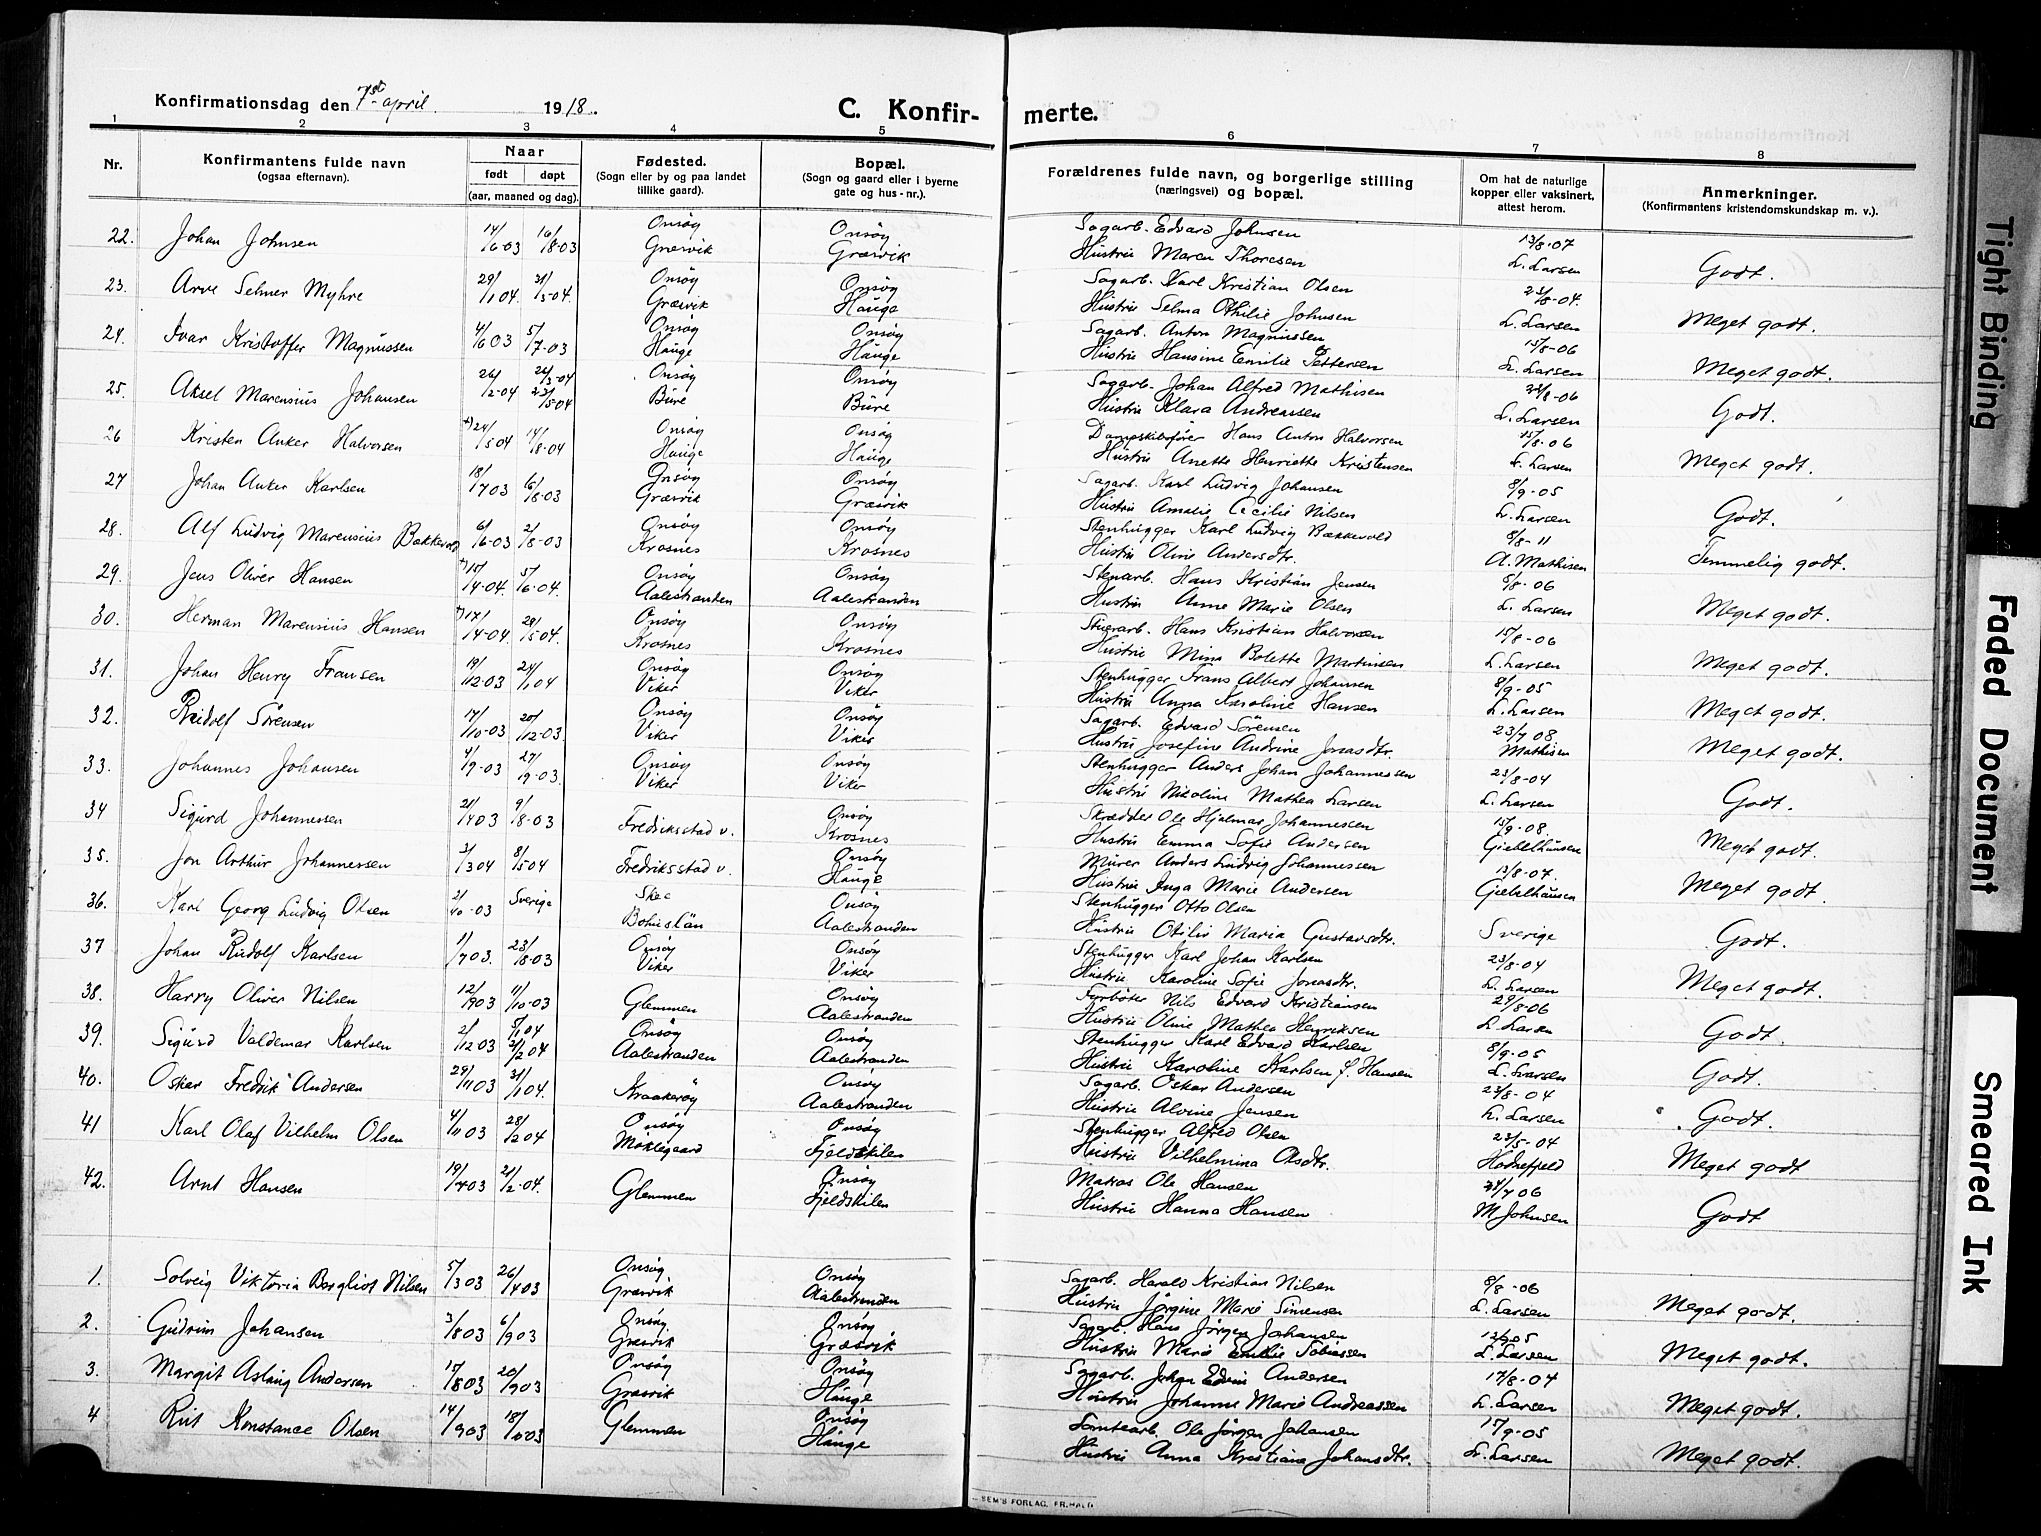 Konfirmationsdag den 7de april 1918.
C. Konfir-
merte.
1 2 3 4 5 6 7 8
Nr.
Konfirmantens fulde navn
(ogsaa efternavn).
Naar
født døpt
(aar, maaned og dag).
Fødested.
(Sogn eller by og paa landet
tillike gaard).
Bopæl.
(Sogn og gaard eller i byerne
gate og hus-nr.).
Forældrenes fulde navn, og borgerlige stilling
(næringsvei) og bopæl.
Om hat de naturlige
kopper eller vaksinert,
attest herom.
Anmerkninger.
(Konfirmantens kristendomskundskap m. v.).
22. Johan Johnsen 14/6 03 16/8 03 Onsøy Græsvik Onsøy Græsvik Sagarb. Edvard Johnsen 13/8-07
Hustru Maren Thoresen L. Larsen Godt.
23. Arve Selmer Myhre 29/1 04. 31/5 04. Onsøy Græsvik Onsøy Hauge Sagarb. Karl Kristian Olsen 23/8-04.
Hustru Selma Othilie Johnsen L. Larsen Meget godt.
24. Ivar Kristoffer Magnussen 4/6 03 5/7-03 Onsøy Hauge Onsøy Hauge Sagarb. Anton Magnussen 15/8-06
Hustru Hansine Emilie Pettersen L. Larsen Meget godt.
25. Aksel Marensius Johansen 26/2-04 26/3-04 23/5-04 Onsøy Bure Onsøy Bure Sagarb. Johan Alfred Mathisen 28/8-06
Hustru Klara Andreasen L. Larsen Godt.
26 Kristen Anker Halvorsen +) 24/5 04 14/8-04 Onsøy Hauge Onsøy Hauge Dampskibsfører Hans Anton Halvorsen 15/8-06
Hustru Anette Henriette Kristensen L. Larsen Meget godt.
27 Johan Anker Karlsen 18/7 03 16/8-03 Onsøy Græsvik Onsøy Græsvik Sagarb. Karl Ludvig Johansen 8/9-05
Hustru Amalie Cecilie Nilsen L. Larsen Godt.
28. Alf Ludvig Marensius Bakkevold 6/6-03 2/8-03 Onsøy Krosnes Onsøy Krosnes Stenhugger Karl Ludvig Bakkevold 8/8-11
Hustru Oline Andersdtr. A. Mathisen Temmelig godt.
29. Jens Oliver Hansen +) 15/4-04. 5/6-04. Onsøy Aalestranden Onsøy Aalestranden Stenarb. Hans Kristian Jensen 8/8-06
Hustru Anne Marie Olsen L. Larsen Meget godt.
30. Herman Marensius Hansen +) 17/4-04. 29/5 04. Onsøy Krosnes Onsøy Krosnes Hans Kristian Halvorsen 15/8-06
Hustru Mina Bolette Martinsen L. Larsen Meget godt.
31. Johan Henry Fransen 19/12-03 24/1 04 Onsøy Viker Onsøy Viker Stenhugger Frans Albert Johansen 8/9-05
Hustru Anna Karoline Hansen L. Larsen Meget godt.
32. Rudolf Sørensen 17/10-03 20/12-03. Onsøy Viker Onsøy Viker Sagarb. Edvard Sørensen 23/7 08.
Hustru Josefine Andrine Jonasdtr. Mathisen Meget godt.
33. Johannes Johansen 4/9-03 27/9-03. Onsøy Viker Onsøy Viker Stenhugger Anders Johan Johannessen 23/8-04
Hustru Nikoline Mathea Larsen L. Larsen Godt.
34 Sigurd Johannessen 21/7 03 9/8-03 Fredriksstad v. Onsøy Krosnes Skrædder Ole Hjalmar Johannessen 15/9-08.
Hustru Emma Sofie Andersen Giebelhausen Meget godt.
35. Jon Arthur Johannessen 3/3 04 8/5 04 Fredriksstad v. Onsøy Hauge Murer Anders Ludvig Johannessen 13/8-07.
Hustru Inga Marie Andersen Giebelhausen Meget godt.
36. Karl Georg Ludvig Olsen 2/10-03 Sverige Skee Bohuslän Onsøy Aalestranden Stenhugger Otto Olsen
Hustru Otilie Maria Gustavsdtr. Sverige Godt.
37 Johan Rudolf Karlsen 1/7 03. 23/8 03 Onsøy Viker Onsøy Viker Stenhugger Karl Johan Karlsen 23/8-04
Hustru Karoline Sofie Jonasdtr. L. Larsen Meget godt.
38. Harry Oliver Nilsen 12/9 03 11/10-03 Glemmen Onsøy Aalestranden Fyrbøter Nils Edvard Kristiansen 29/8-06
Hustru Oline Mathea Henriksen L. Larsen Godt.
39. Sigurd Valdemar Karlsen 2/12 03 5/1 04 21/2 04 Onsøy Aalestranden Onsøy Aalestranden Stenhugger Karl Edvard Karlsen 8/9-05
Hustru Karoline Karlsen f. Hansen L. Larsen Godt.
40. Oskar Fredrik Andersen 29/11 03 31/1 04. Kraakerøy Onsøy Aalestranden Sagarb. Oskar Andersen 23/8-04
Hustru Alvine Jensen L. Larsen Godt.
41 Karl Olaf Vilhelm Olsen 4/11 03 28/2 04 Onsøy Møklegaard Onsøy Fjeldskilen Stenhugger Alfred Olsen 23/5-04
Hustru Vilhelmina Olsdtr. Meget godt
42. Arnt Hansen 19/7 03 21/2-04. Glemmen Onsøy Fjeldskilen Matros Ole Hansen 31/7 06
Hustru Hanna Hansen M Johnsen Godt
1. Solveig Viktoria Bergliot Nilsen 5/3 03 26/4 03 Onsøy Græsvik Onsøy Aalestranden Sagarb. Harald Kristian Nilsen 8/8-06
Hustru Jørgine Marie Simensen L. Larsen Meget godt.
2. Gudrun Johansen 3/8 03 6/9 03 Onsøy. Græsvik Onsøy Græsvik Sagarb. Hans Jørgen Johansen
Hustru Marie Emilie Tobiassen L. Larsen Meget godt.
3. Margit Aslaug Andersen 17/8 03 20/9 03 Onsøy Græsvik Onsøy Hauge Sagarb. Johan Edvin Andersen 17/8-04
Hustru Johanne Marie Andreassen L. Larsen Meget godt.
4 Rut Konstance Olsen 14/9 03 18/10 03 Glemmen Onsøy Hauge Ole Jørgen Johansen 15/9-05
Hustru Anna Kristiane Johansdtr. L. Larsen Meget godt.
SEM'S FORLAG, FR.HALD
Tight Binding
Faded Document
Smeared Ink